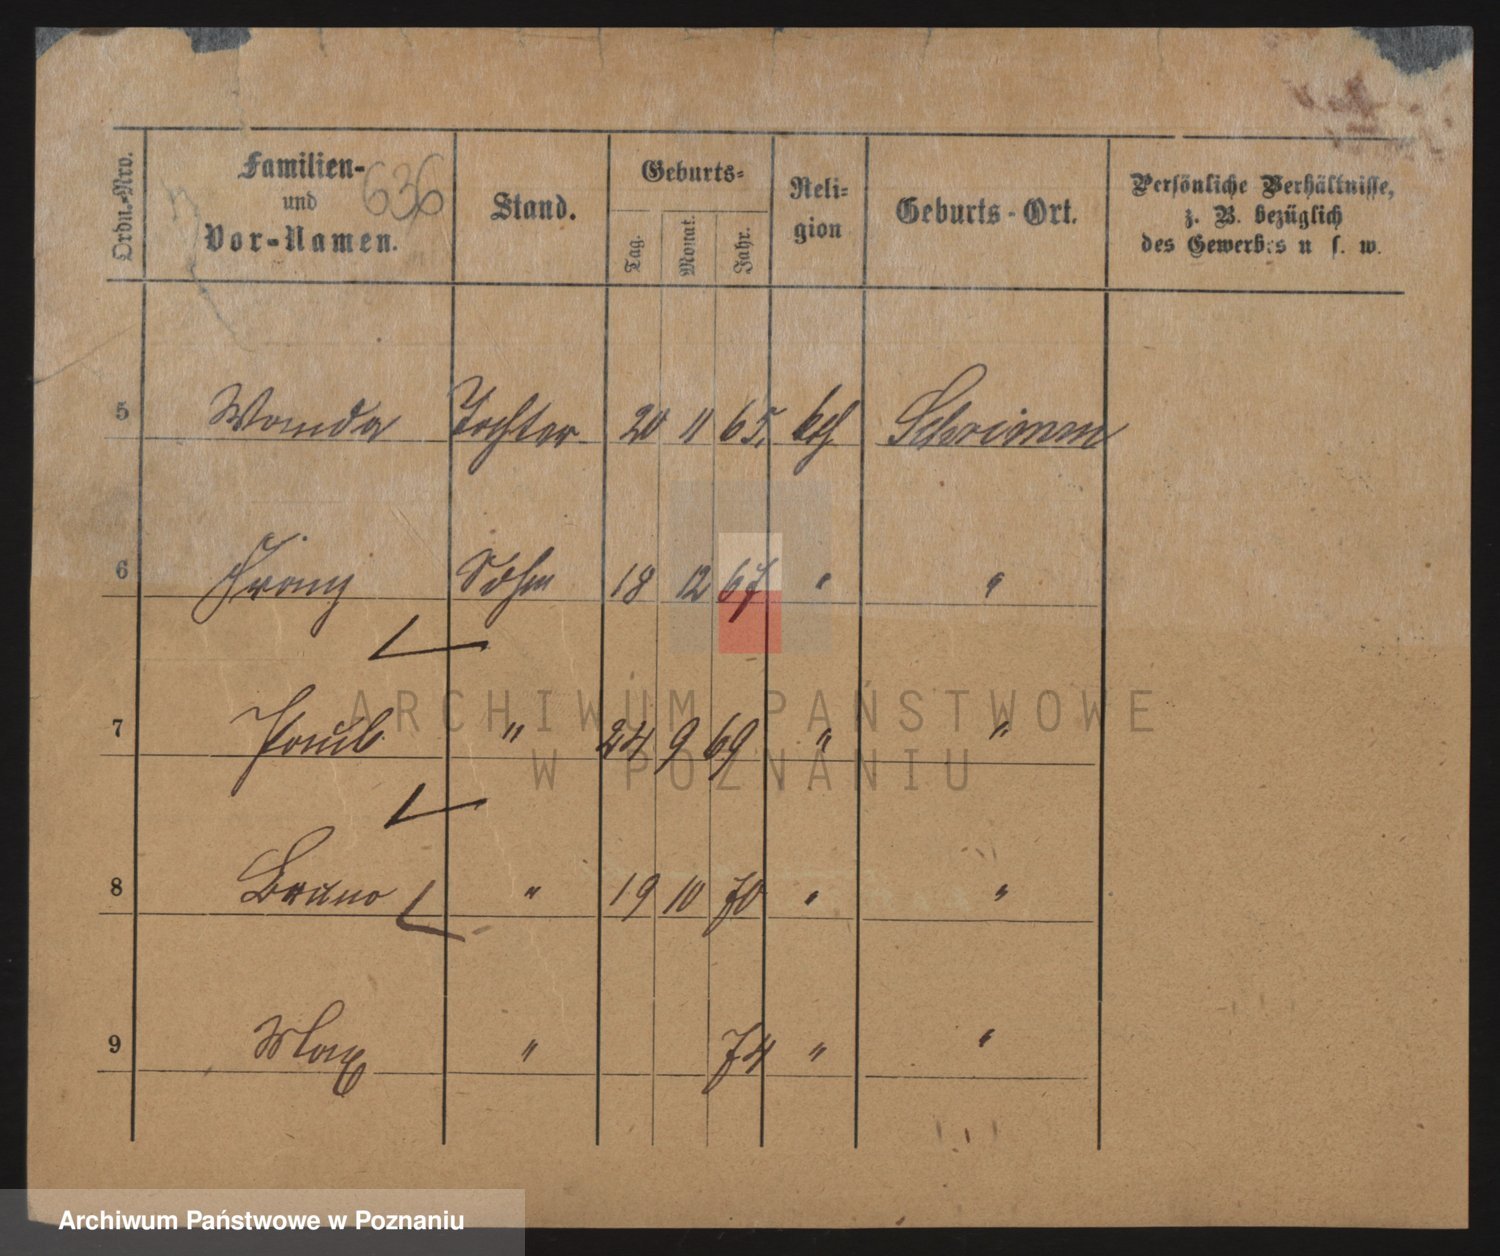 636
Ordn.-Nro.
Familien-
und
Vor-Namen.
Stand.
Geburts-
Tag.
Monat.
Jahr.
Reli-
gion
Geburts-Ort.
Persönliche Verhältnisse,
z. B. bezüglich
des Gewerbes u s. w.
5 Wanda Tochter 20 11 65. kth Schrimm
6 Franz Sohn 18 12 67 " "
7 Paul " 24 9 69 " "
8 Bruno " 19 10 70 " "
9 Max " 74 " "
ARCHIWUM PAŃSTWOWE
W POZNANIU
Archiwum Państwowe w Poznaniu